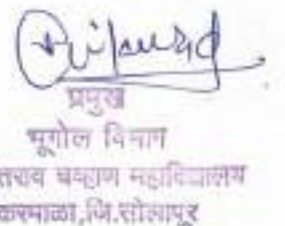 प्रमुख
भूगोल विभाग
तराव चव्हाण महाविद्यालय
करमाळा,जि.सोलापूर